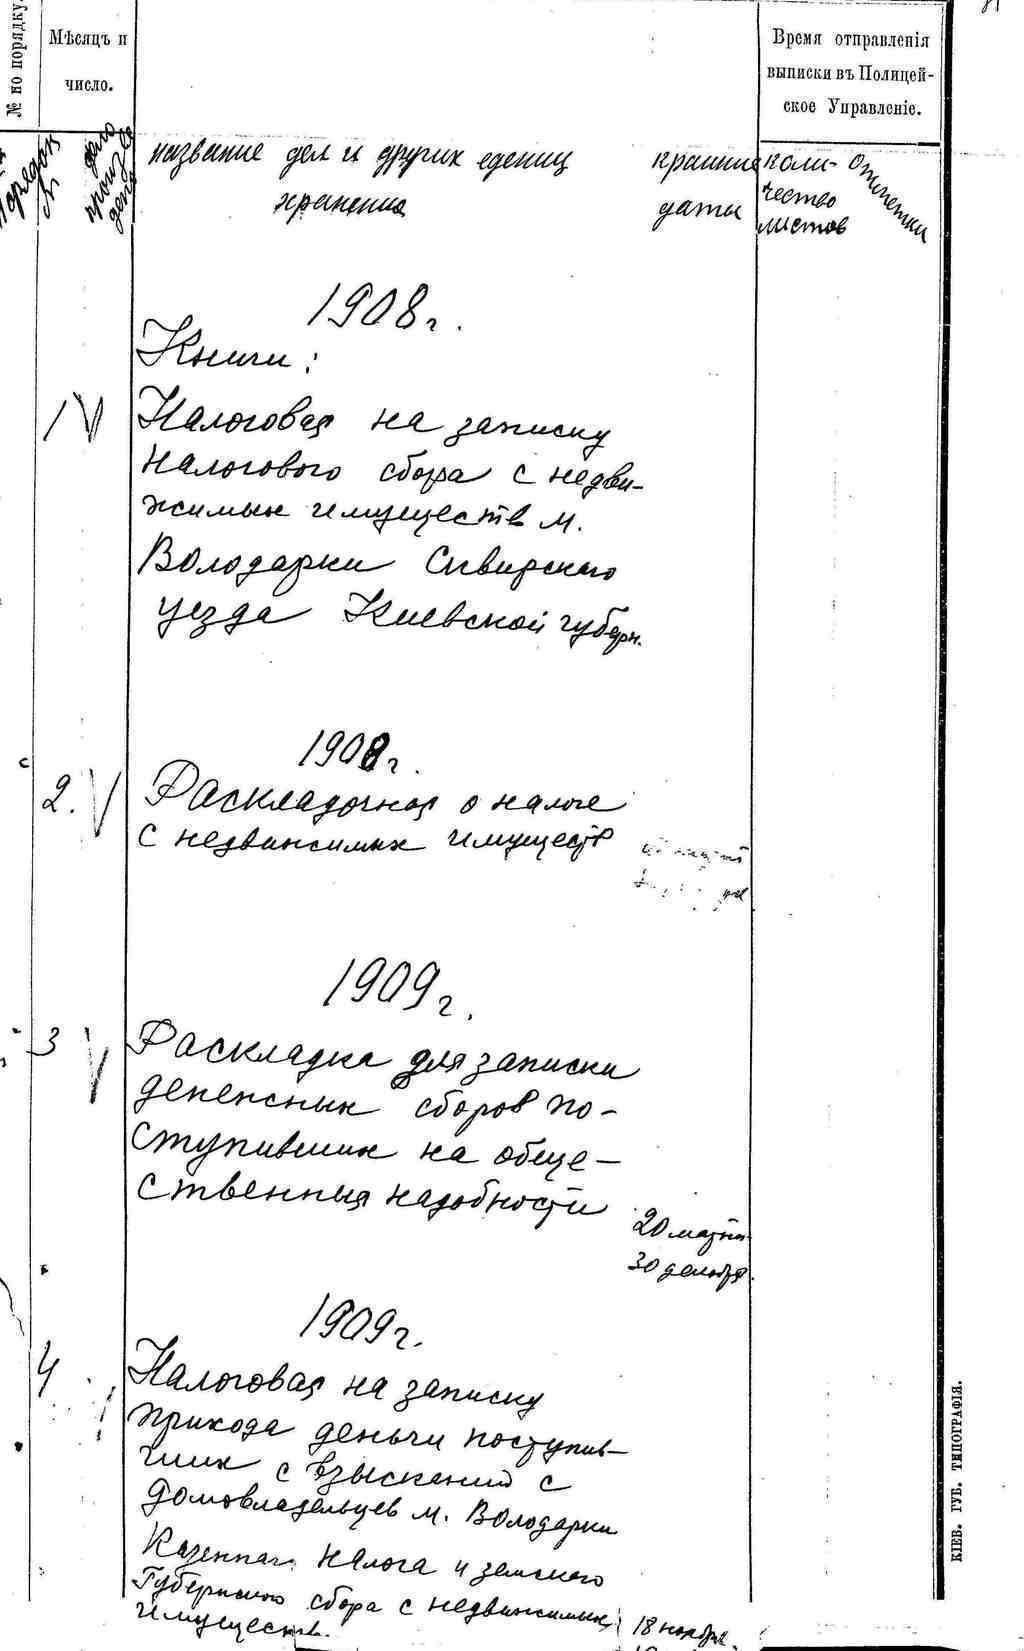 81
№ по порядку.
Мѣсяцъ и
число.
Время отправленія
выписки въ Полицей-
ское Управленіе.
порядок
№
дело
произв
дено
название дел и других едениц
хранения
крайние
даты
коли-
чество
листов
отметки
1908 г.
Книги:
1 V
Налоговая на записку
налогового сбора с недви-
жимых имуществ м.
Володарки Сквирского
уезда Киевской губерн.
1908 г.
2. V
Раскладочная о налоге
с недвижимых имуществ
1909 г.
3 V
Раскладка для записки
денежных сборов по-
ступивших на обще-
ственные надобности
20 марта
30 декабря.
1909 г.
4
Налоговая на записку
прихода деньги поступив-
ших с взысканий с
домовладельцев м. Володарки
Казенного налога и земского
Губернского сбора с недвижимых
имуществ.
18 ноября
КІЕВ. ГУБ. ТИПОГРАФІЯ.